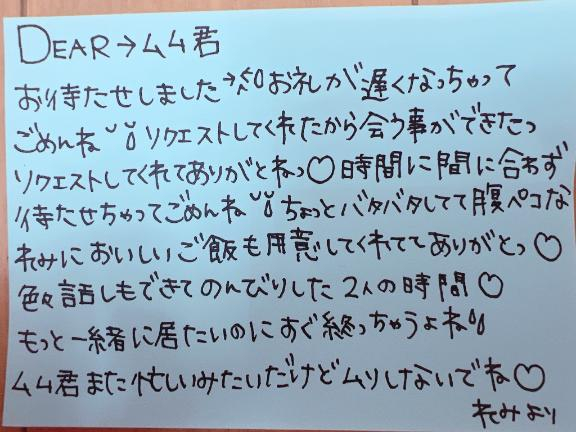 DEAR→ムム君
お待たせしましたお礼が遅くなっちゃって
ごめんねリクエストしてくれたから会う事ができたっ
リクエストしてくれてありがとねっ♡時間に間に合わず
待たせちゃってごめんねちょっとバタバタしてて腹ペコな
れみにおいしいご飯も用意してくれててありがとっ♡
色々話しもできてのんびりした2人の時間♡
もっと一緒に居たいのにすぐ終っちゃうよね
ムム君また忙しいみたいだけどムリしないでね♡
れみより